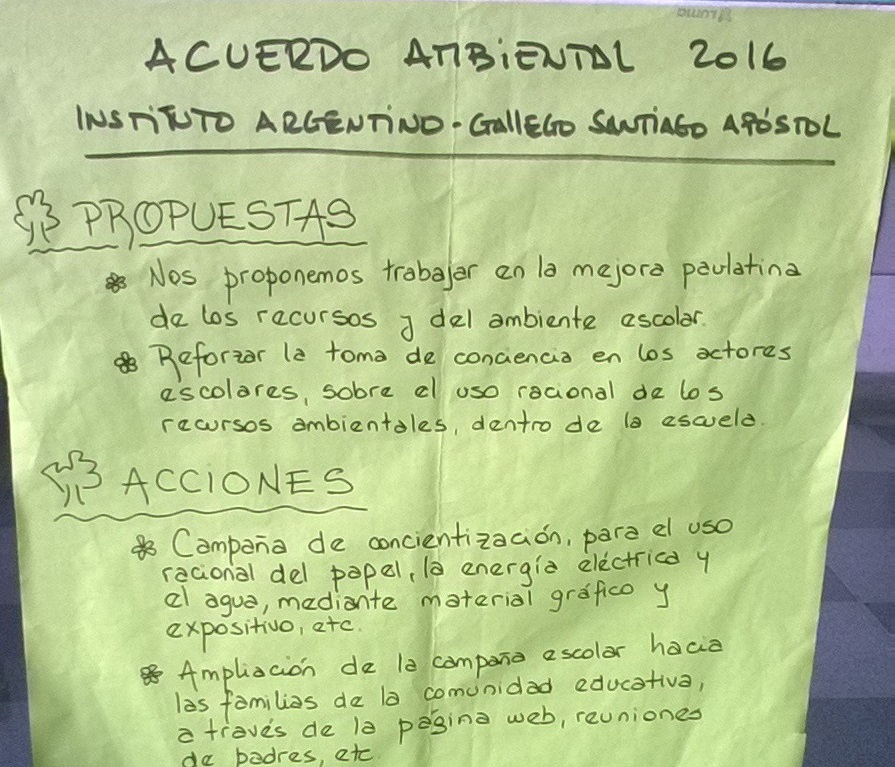 ACUERDO AMBIENTAL 2016
INSTITUTO ARGENTINO-GALLEGO SANTIAGO APÓSTOL
PROPUESTAS
Nos proponemos trabajar en la mejora paulatina
de los recursos y del ambiente escolar.
Reforzar la toma de conciencia en los actores
escolares, sobre el uso racional de los
recursos ambientales, dentro de la escuela.
ACCIONES
Campaña de concientización, para el uso
racional del papel, la energía eléctrica y
el agua, mediante material gráfico y
expositivo, etc.
Ampliación de la campaña escolar hacia
las familias de la comunidad educativa,
a través de la página web, reuniones
de padres, etc